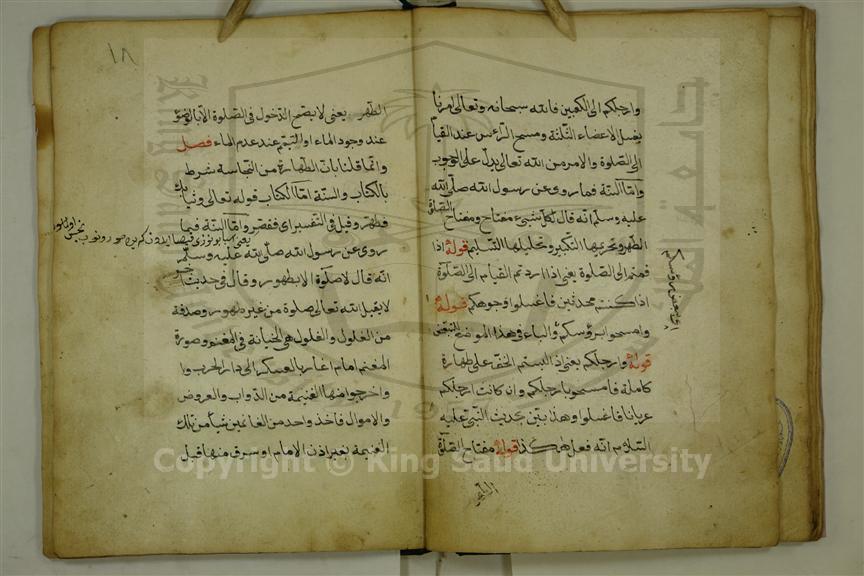 وارجلكم الى الكعبين فالله سبحانه وتعالى امرنا
بغسل الاعضاء الثلثة ومسح الرأس عند القيام
الى الصلوة والامر من الله تعالى يدل على الوجوب
واما السنة فما روى عن رسول الله صلى الله
عليه وسلم انه قال لكل شيىء مفتاح ومفتاح الصلوة
الطهور وتحريمها التكبير وتحليلها التسليم قوله اذا
قمتم الى الصلوة يعنى اذا اردتم القيام الى الصلوة
اذا كنتم محدثين فاغسلوا وجوهكم قوله
وامسحوا برؤسكم والباء فى هذا الموضع للتبعيض
قوله وارجلكم يعنى اذا لبستم الخف على طهارة
كاملة فامسحوا بارجلكم وان كانت ارجلكم
عريانا فاغسلوا وهذا بيّن بحديث النبى عليه
السلام انه فعل هكذا قوله مفتاح الصلوة
اى بعض رؤسكم
١٨
الطهر يعنى لا يصح الدخول فى الصلوة الا بالوضوء
عند وجود الماء او التيمم عند عدم الماء فصل
وانما قلنا بان الطهارة من النجاسة شرط
بالكتاب والسنة اما الكتاب قوله تعالى وثيابك
فطهر وقيل فى التفسير اى فقصر واما السنة فيما
روى عن رسول الله صلى الله عليه وسلم
انه قال لا صلوة الا بطهور وقال فى حديث
لا يقبل الله تعالى صلوة من غير طهور وصدقة
من الغلول والغلول هى الخيانة فى المغنم وصورة
المغنم امام اغار بالعسكر الى دار الحرب وا
واخرجوا منها الغنيمة من الدواب والعروض
والاموال فاخذ واحد من الغانمين شيأ من تلك
الغنيمة بغير اذن الامام او سرق منها قبل
Copyright © King Saud University